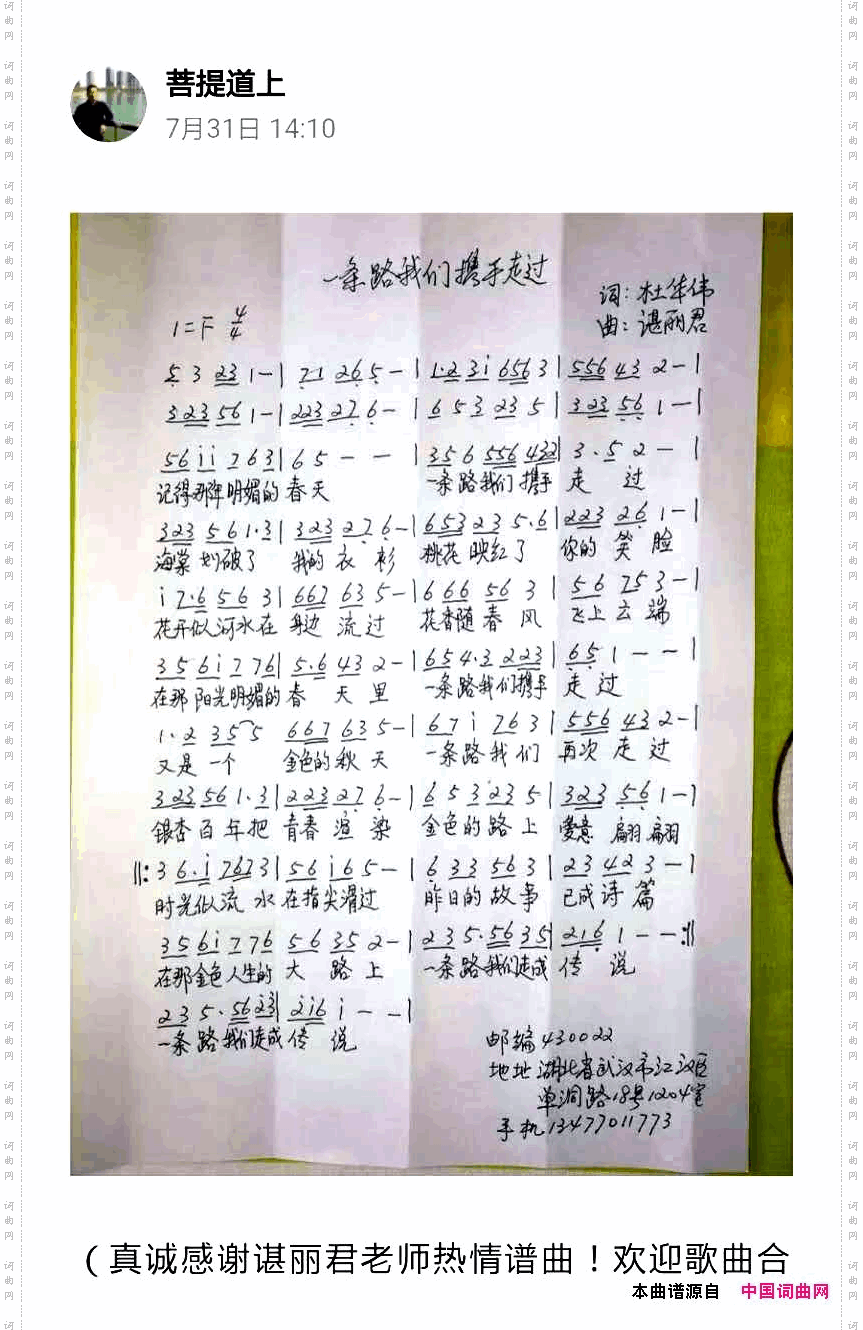 菩提道上
7月31日 14:10
一条路我们携手走过
词:杜华伟
1=F 4/4
曲:谌丽君
5 3 23 1 - | 71 26 5 - | 1·2 3i 656 3 | 556 43 2 - |
323 56 1 - | 223 27 6 - | 6 5 3 23 5 | 323 56 1 - |
56 ii 7 63 | 6 5 - - | 356 556 432 | 3 · 5 2 - |
记得那年明媚的 春天 一条路我们携手 走 过
323 5 6 1·3 | 323 27 6 - | 653 23 5·6 | 223 26 1 - |
海棠划破了 我的 衣 衫 桃花 映红了 你的 笑 脸
i 7·6 56 3 | 667 63 5 - | 6 66 56 3 | 56 75 3 - |
花开似河水在 身边 流过 花香随春风 飞上云端
356i 7 76 | 5·6 43 2 - | 654·3 223 | 65 1 - - |
在那阳光明媚的春 天 里 一条路我们携手 走过
1·2 35 5 667 635 - | 67 i 763 | 556 43 2 - |
又是一个 金色的秋天 一条路我们 再次走过
32356 1·3 | 22327 6 - | 6 5 323 5 | 323 56 1 - |
银杏百年把 青春渲染 金色的路上 爱意 翩翩
‖: 3 6·i 7673 | 56 i6 5 - | 6 33 563 | 23 42 3 - |
时光似流 水在指尖滑过 昨日的故事 已成诗篇
356i 776 56 35 2 - | 235·56 35 | 216 1 - - :‖
在那金色人生的 大 路 上 一条路我们走成 传 说
235·56 23 | 216 i - - |
一条路我们走成传 说
邮编430022
地址湖北省武汉市江汉区
单洞路18号1204室
手机13477011773
(真诚感谢谌丽君老师热情谱曲!欢迎歌曲合
本曲谱源自 中国词曲网